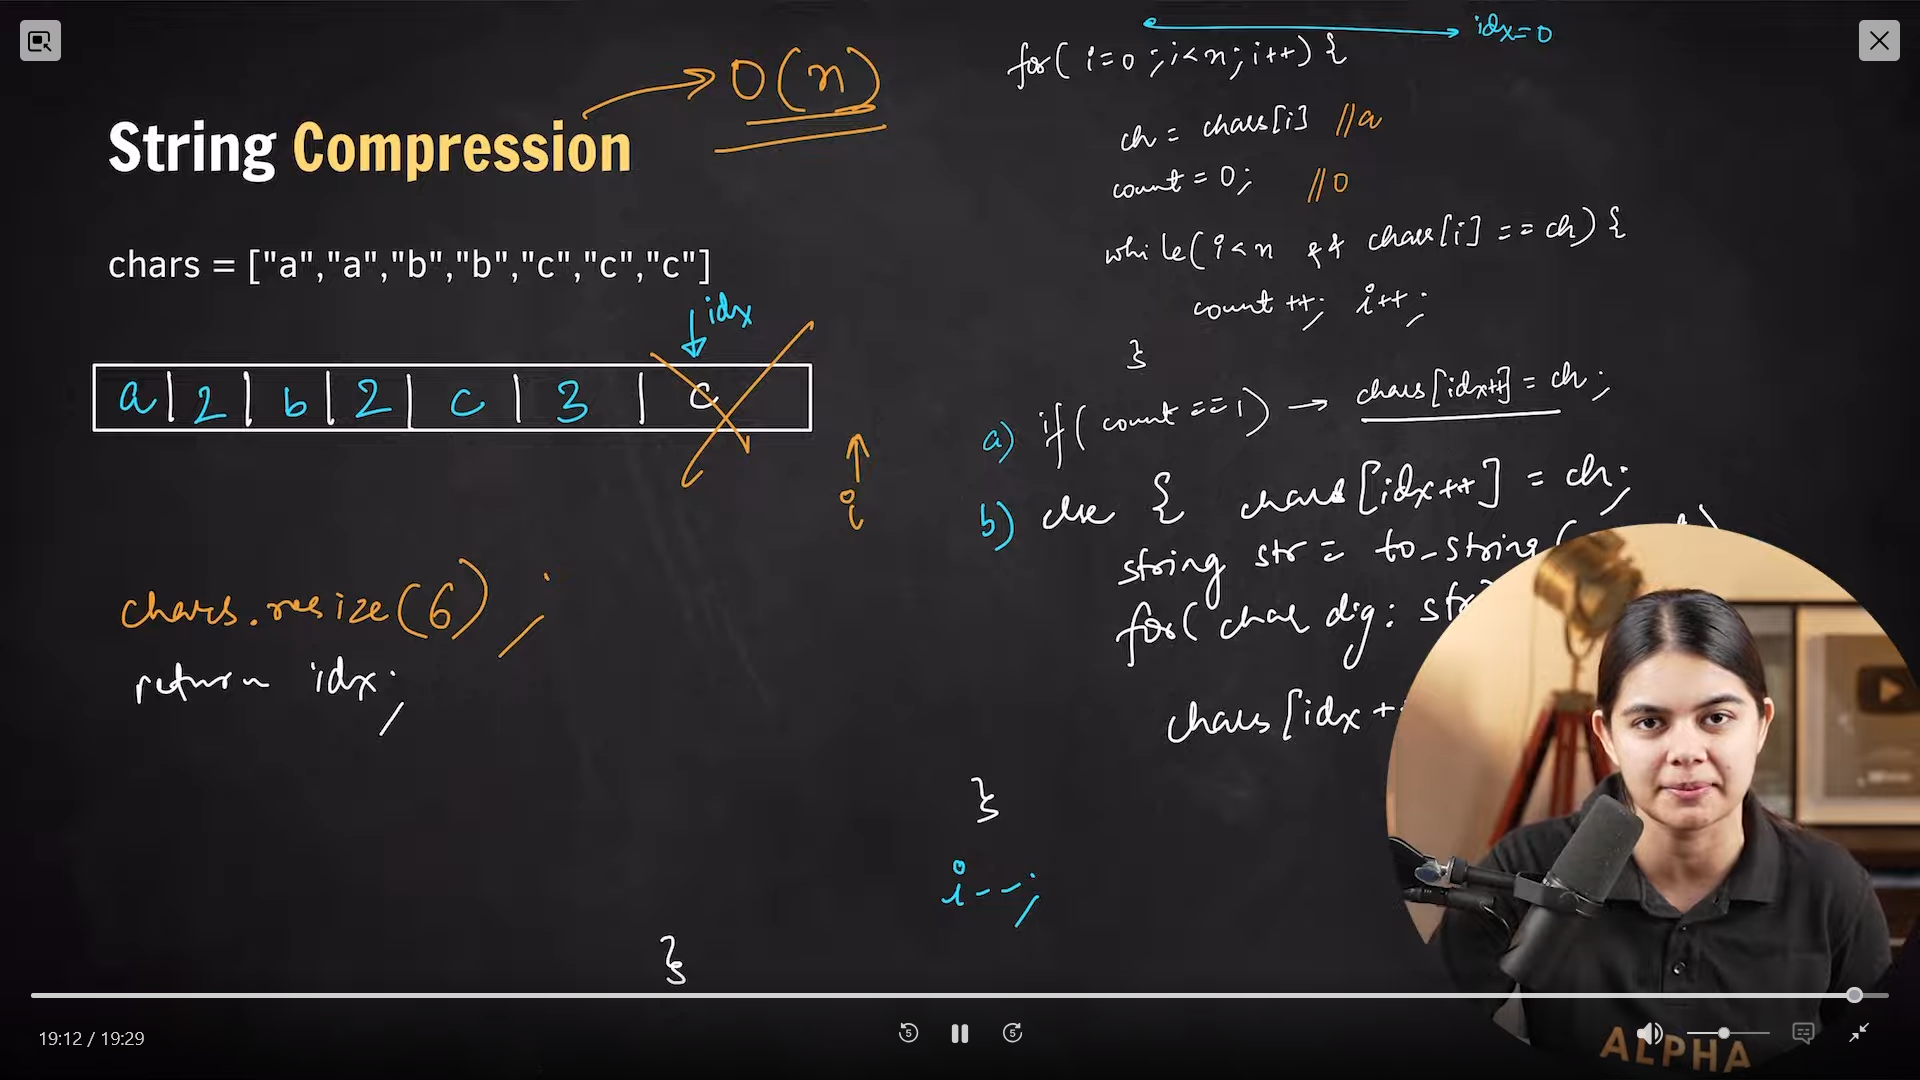 String Compression
O(n)
chars = ["a","a","b","b","c","c","c"]
idx
a 2 b 2 c 3 c
i
chars.resize(6);
return idx;
idx=0
for( i=0 ; i<n; i++) {
ch = chars[i] //a
count = 0; //0
while( i<n && chars[i] == ch) {
count ++; i++;
}
a) if( count == 1) → chars[idx++] = ch;
b) else { chars[idx++] = ch;
string str = to_string(
for( char dig: str
chars[idx +
}
i--;
}
19:12 / 19:29
5
5
ALPHA